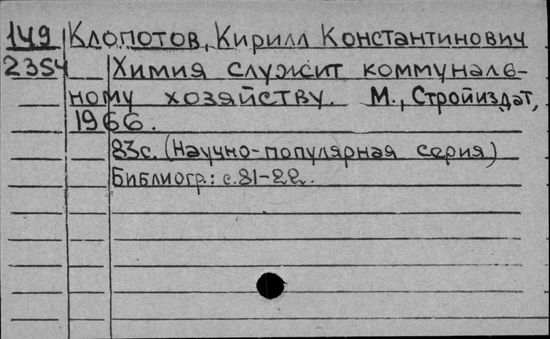 149 Клопотов, Кирилл Константинович
2354 Химия служит коммуналь-
ному хозяйству. М., Стройиздат,
1966.
83с. (Научно-популярная серия)
Библиогр.: с.81-82.